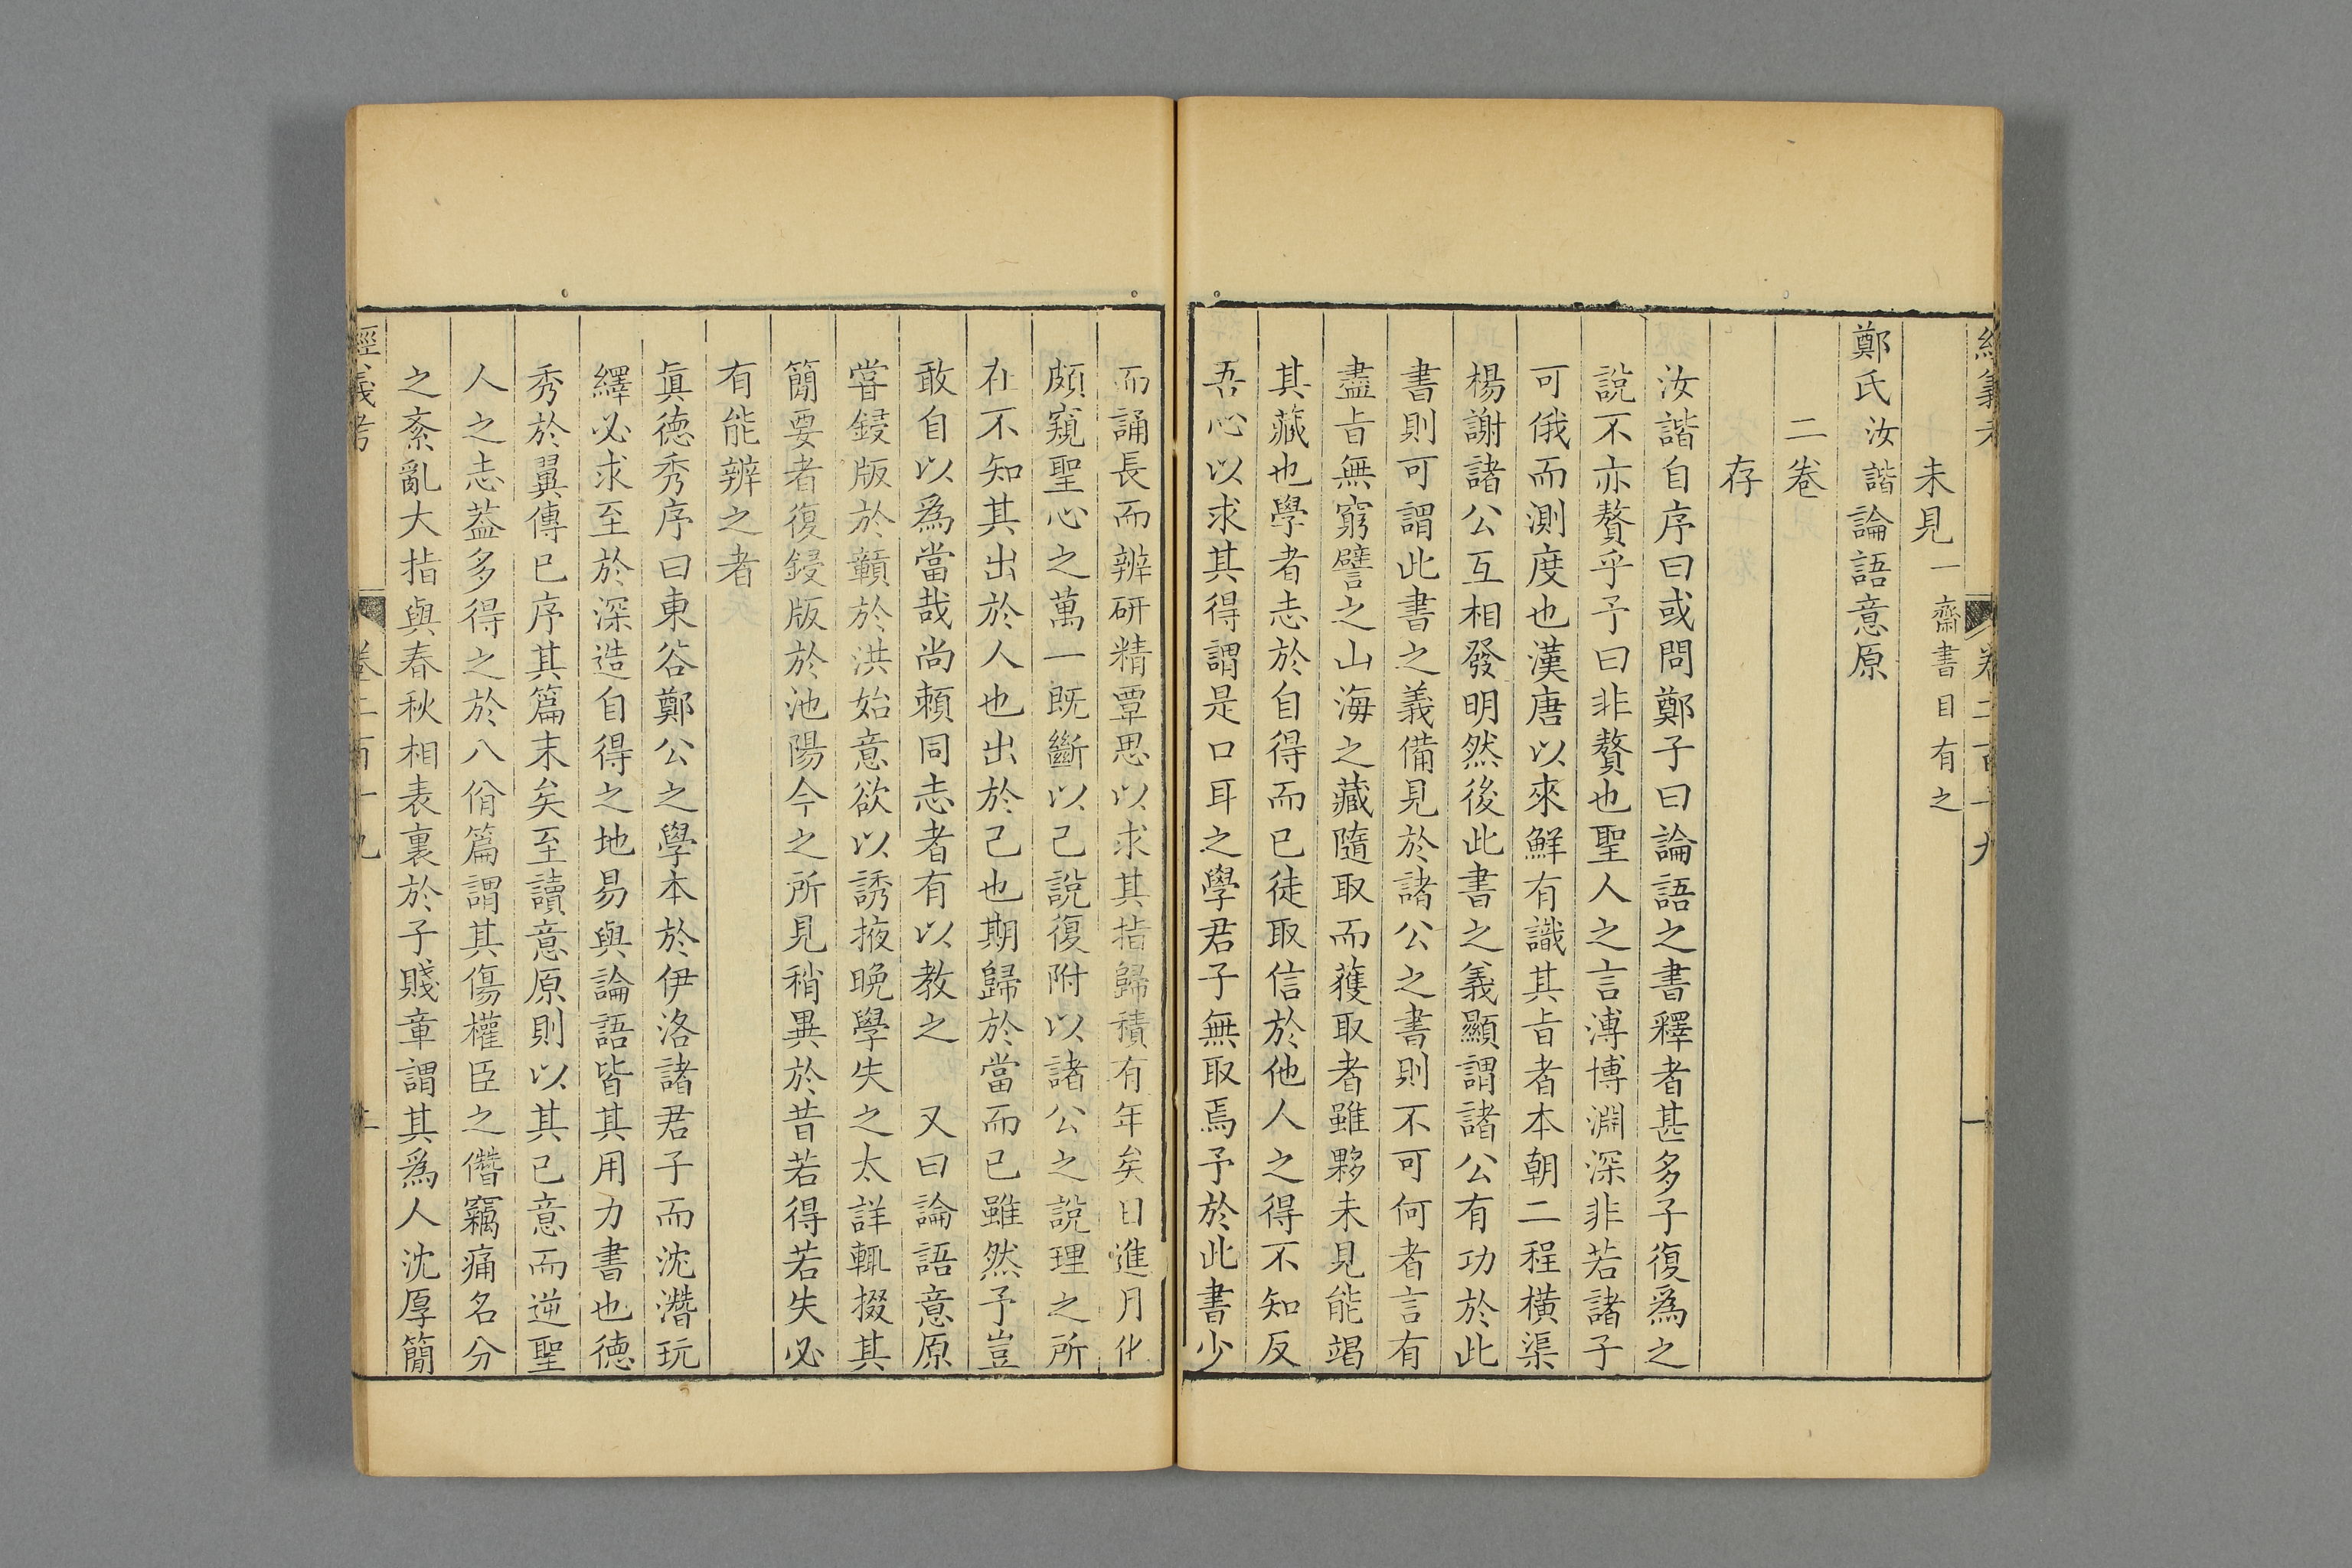 經義考 卷二百十九
未見一齋書目有之
鄭氏汝諧論語意原
二卷
存
汝諧自序曰或問鄭子曰論語之書釋者甚多子復爲之
說不亦贅乎予曰非贅也聖人之言溥博淵深非若諸子
可俄而測度也漢唐以來鮮有識其旨者本朝二程橫渠
楊謝諸公互相發明然後此書之義顯謂諸公有功於此
書則可謂此書之義備見於諸公之書則不可何者言有
盡旨無窮譬之山海之藏隨取而獲取者雖夥未見能竭
其藏也學者志於自得而已徒取信於他人之得不知反
吾心以求其得謂是口耳之學君子無取焉予於此書少
而誦長而辨研精覃思以求其指歸積有年矣日進月化
頗窺聖心之萬一既斷以己說復附以諸公之說理之所
在不知其出於人也出於己也期歸於當而已雖然予豈
敢自以爲當哉尚賴同志者有以教之 又曰論語意原
嘗鋟版於贛於洪始意欲以誘掖晩學失之太詳輒掇其
簡要者復鋟版於池陽今之所見稍異於昔若得若失必
有能辨之者
眞德秀序曰東谷鄭公之學本於伊洛諸君子而沈潛玩
繹必求至於深造自得之地易與論語皆其用力書也德
秀於翼傳已序其篇末矣至讀意原則以其已意而逆聖
人之志葢多得之於八佾篇謂其傷權臣之僭竊痛名分
之紊亂大指與春秋相表裏於子賤章謂其爲人沈厚簡
經義考 卷二百十九